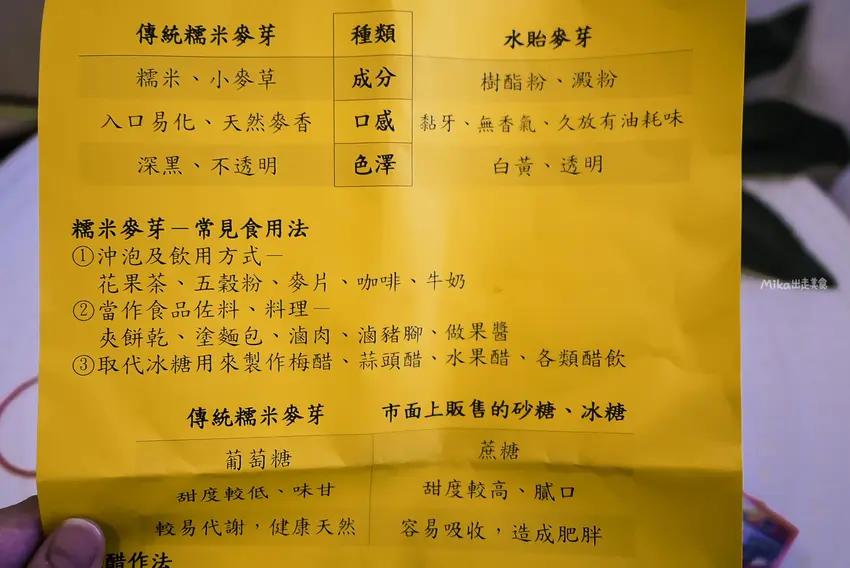 傳統糯米麥芽 種類 水貽麥芽
糯米、小麥草 成分 樹酯粉、澱粉
入口易化、天然麥香 口感 黏牙、無香氣、久放有油耗味
深黑、不透明 色澤 白黃、透明
糯米麥芽－常見食用法
①沖泡及飲用方式－
花果茶、五穀粉、麥片、咖啡、牛奶
②當作食品佐料、料理－
夾餅乾、塗麵包、滷肉、滷豬腳、做果醬
③取代冰糖用來製作梅醋、蒜頭醋、水果醋、各類醋飲
傳統糯米麥芽 市面上販售的砂糖、冰糖
葡萄糖 蔗糖
甜度較低、味甘 甜度較高、膩口
較易代謝，健康天然 容易吸收，造成肥胖
醋作法
Mika出走美食